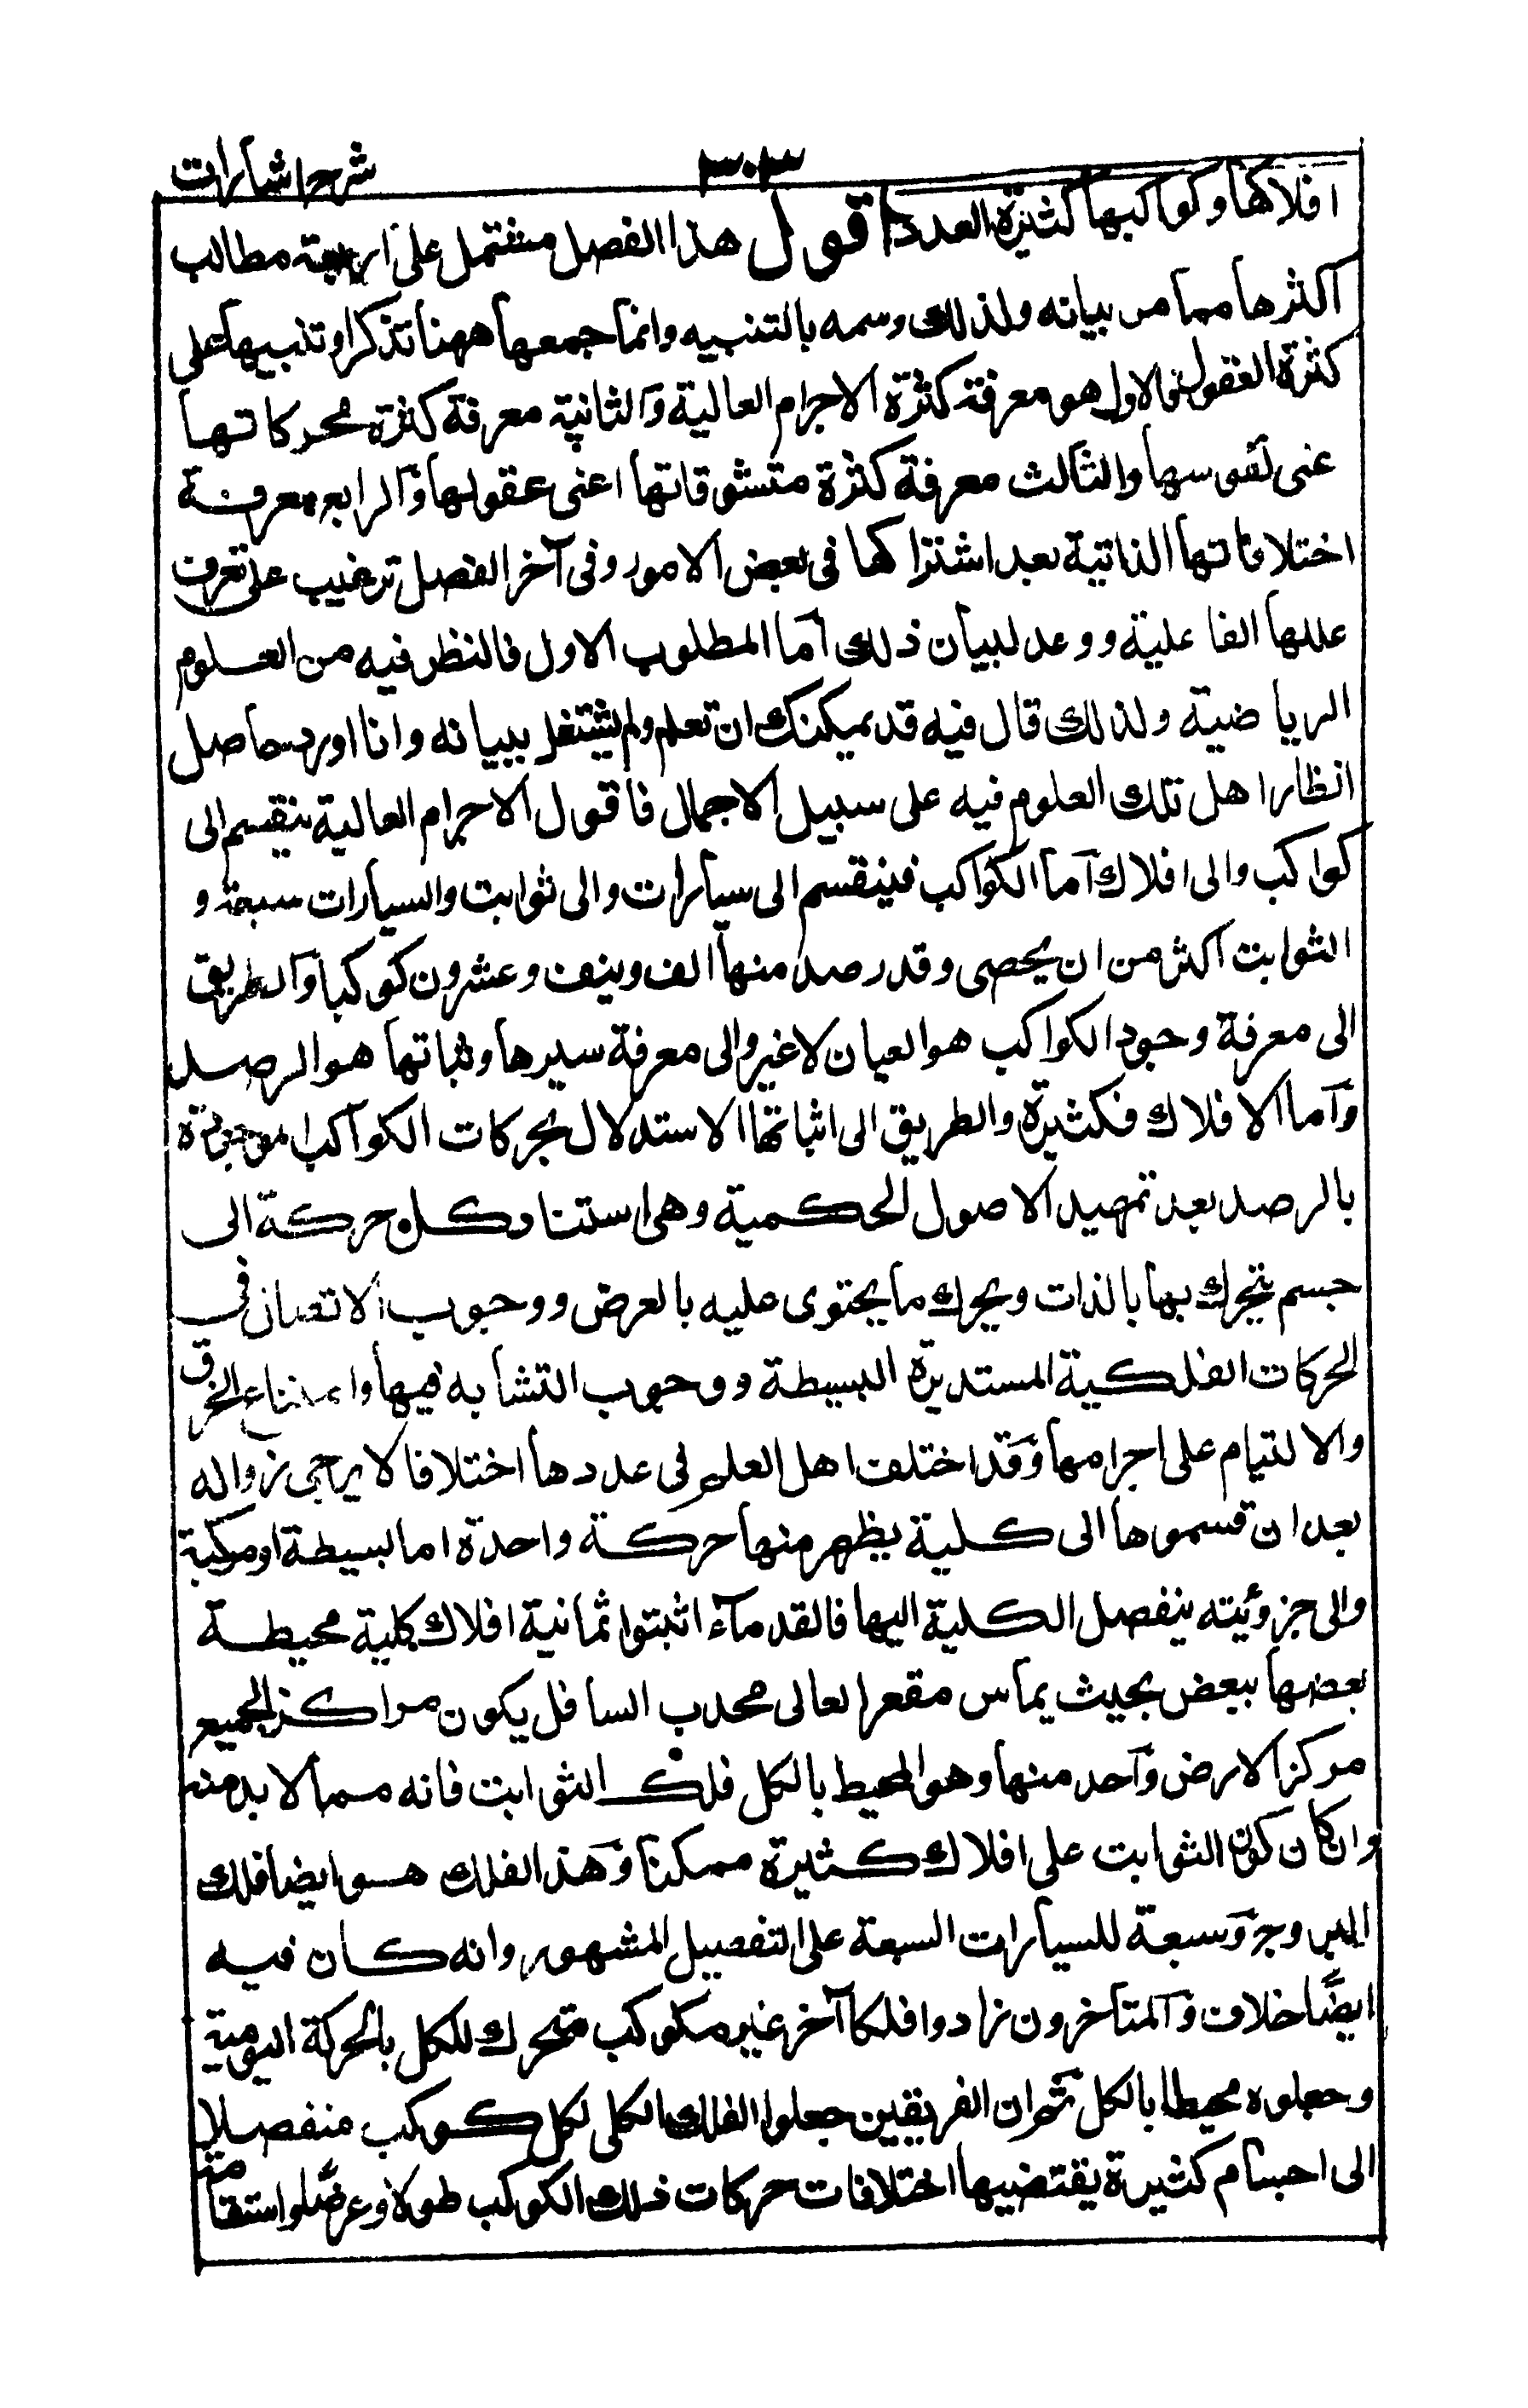 شرح اشارات
٣٠٣
افلاكها وكواكبها كثيرة العدد اقول هذا الفصل مشتمل على اربعة مطالب
اكثرها مما مر بيانه ولذلك وسمه بالتنبيه وانما جمعها ههنا تذكرا وتنبيها على
كثرة العقول فالاول هو معرفة كثرة الاجرام العالية والثانية معرفة كثرة محركاتها
عنى نفوسها والثالث معرفة كثرة متشوقاتها اعنى عقولها والرابع معرفة
اختلافاتها الذاتية بعد اشتراكها فى بعض الامور وفى آخر الفصل ترغيب على تعرف
عللها الفاعلية ووعد لبيان ذلك اما المطلوب الاول فالنظر فيه من العلوم
الرياضية ولذلك قال فيه قد يمكنك ان تعلم ولم يشتغل ببيانه وانا اورد حاصل
انظار اهل تلك العلوم فيه على سبيل الاجمال فاقول الاجرام العالية ينقسم الى
كواكب والى افلاك اما الكواكب فينقسم الى سيارات والى ثوابت والسيارات سبعة و
الثوابت اكثر من ان يحصى وقد رصد منها الف ونيف وعشرون كوكبا والطريق
الى معرفة وجود الكواكب هو العيان لاغير والى معرفة سيرها وثباتها هو الرصد
واما الافلاك فكثيرة والطريق الى اثباتها الاستدلال بحركات الكواكب الموجودة
بالرصد بعد تمهيد الاصول الحكمية وهى استناد كل حركة الى
جسم يتحرك بها بالذات ويحرك ما يحتوى عليه بالعرض ووجوب الاتصال فى
الحركات الفلكية المستديرة البسيطة ووجوب التشابه فيها وامتناع الخرق
والالتيام على اجرامها وقد اختلف اهل العلم فى عددها اختلافا لا يرجى زواله
بعد ان قسموها الى كلية يظهر منها حركة واحدة اما بسيطة او مركبة
والى جزوئيته ينفصل الكلية اليها فالقدمآء اثبتوا ثمانية افلاك كلية محيطة
بعضها ببعض بحيث يماس مقعر العالى محدب السافل يكون مراكز الجميع
مركز الارض واحد منها وهو المحيط بالكل فلك الثوابت فانه مما لا بد منه
وان كان كون الثوابت على افلاك كثيرة ممكنا وهذ الفلك هو ايضا فلك
البروج وسبعة للسيارات السبعة على التفصيل المشهور وانه كان فيه
ايضًا خلاف والمتاخرون زادوا فلكا آخر غير مكوكب متحرك للكل بالحركة اليومية
وجعلوه محيطا بالكل ثم ان الفريقين جعلوا الفلك الكلى لكل كوكب منفصلا
الى اجسام كثيرة يقتضيها اختلافات حركات ذلك الكوكب طولا وعرضًا واستقامة